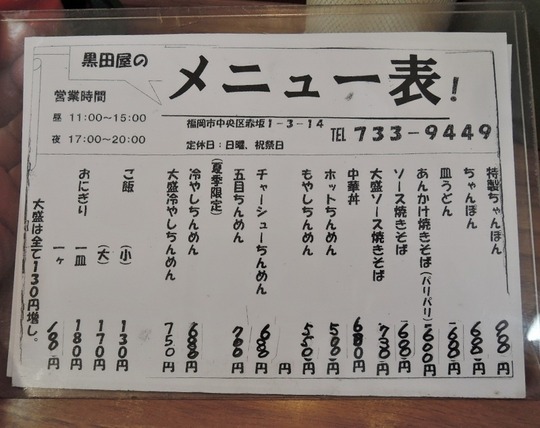 黒田屋の
メニュー表!
営業時間
昼 11:00〜15:00
夜 17:00〜20:00
福岡市中央区赤坂1-3-14
定休日:日曜、祝祭日
TEL 733-9449
特製ちゃんぽん 円
ちゃんぽん 680円
皿うどん 680円
あんかけ焼きそば(パリパリ) 600円
ソース焼きそば 600円
大盛ソース焼きそば 730円
中華丼 680円
ホットちんめん 500円
もやしちんめん 550円
円
チャーシューちんめん 680円
五目ちんめん 700円
(夏季限定)
冷やしちんめん 680円
大盛冷やしちんめん 750円
ご飯 (小) 130円
(大) 170円
おにぎり 一皿 180円
一ヶ 100円
大盛は全て130円増し。